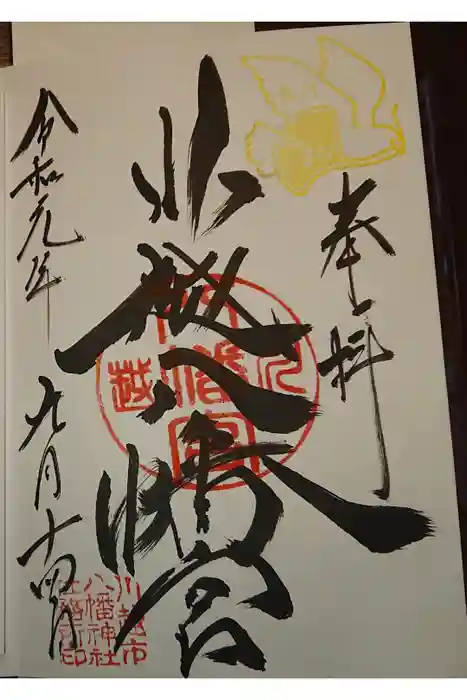 奉拝
川越八幡宮
令和元年 九月十四日
川越
八幡宮
川越市
八幡神社
社務所印